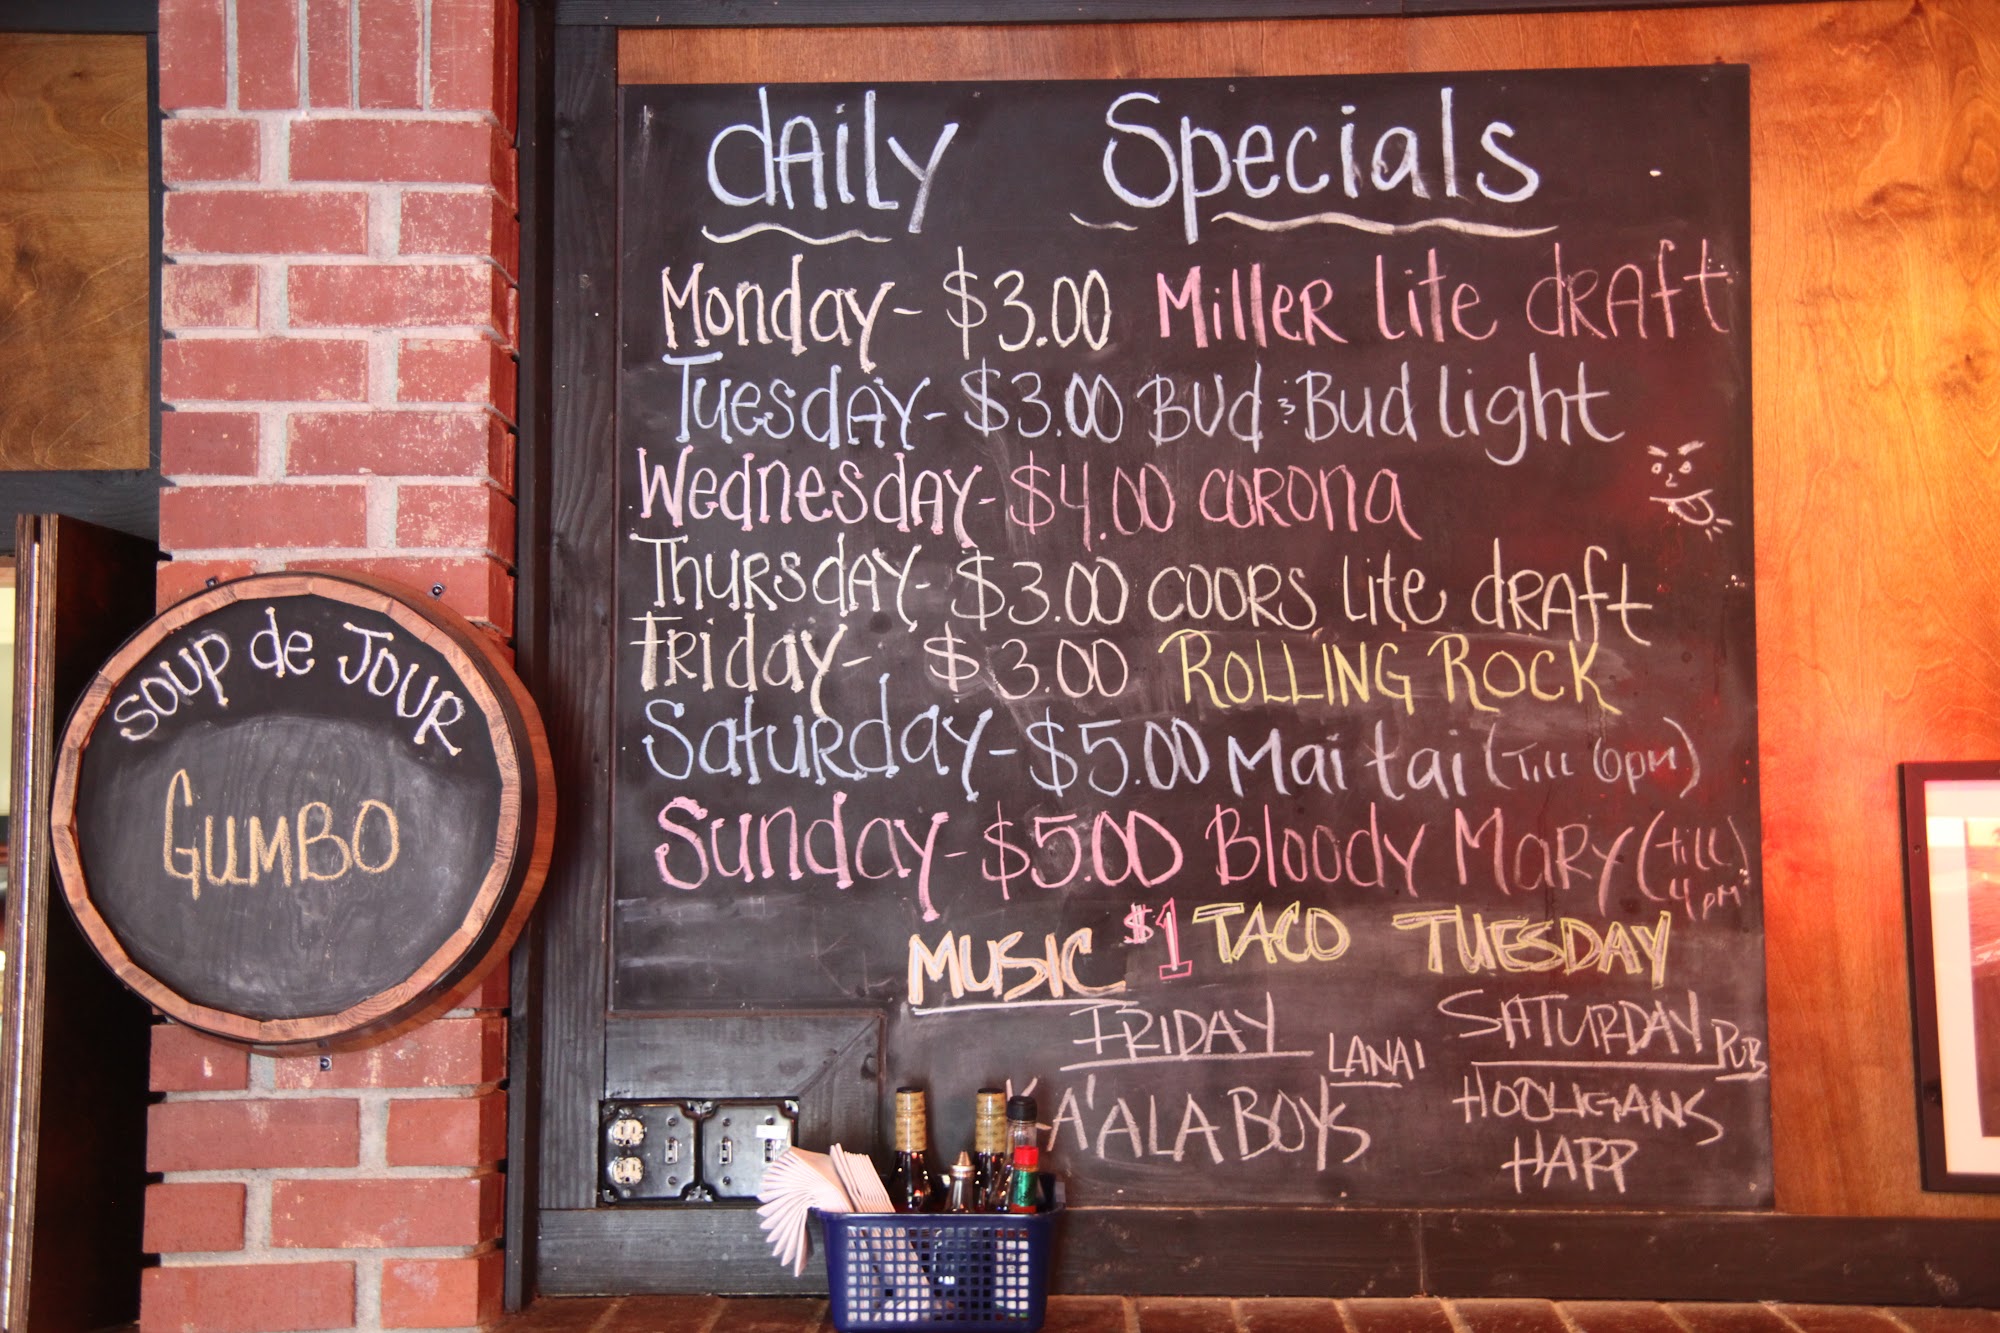 dAily Specials
Monday - $3.00 MilleR Lite dRAft
Tuesday - $3.00 Bud & Bud light
Wednesday - $4.00 CORONA
Thursday - $3.00 COORS Lite dRAft
Friday - $3.00 ROLLING ROCK
Saturday - $5.00 Mai tai (Till 6pm)
Sunday - $5.00 Bloody Mary (till 4pm)
$1 TACO TUESDAY
MUSIC
FRIDAY LANAI
KA'ALA BOYS
SATURDAY PUB
HOOLIGANS
HAPP
SOUP de JOUR
GUMBO